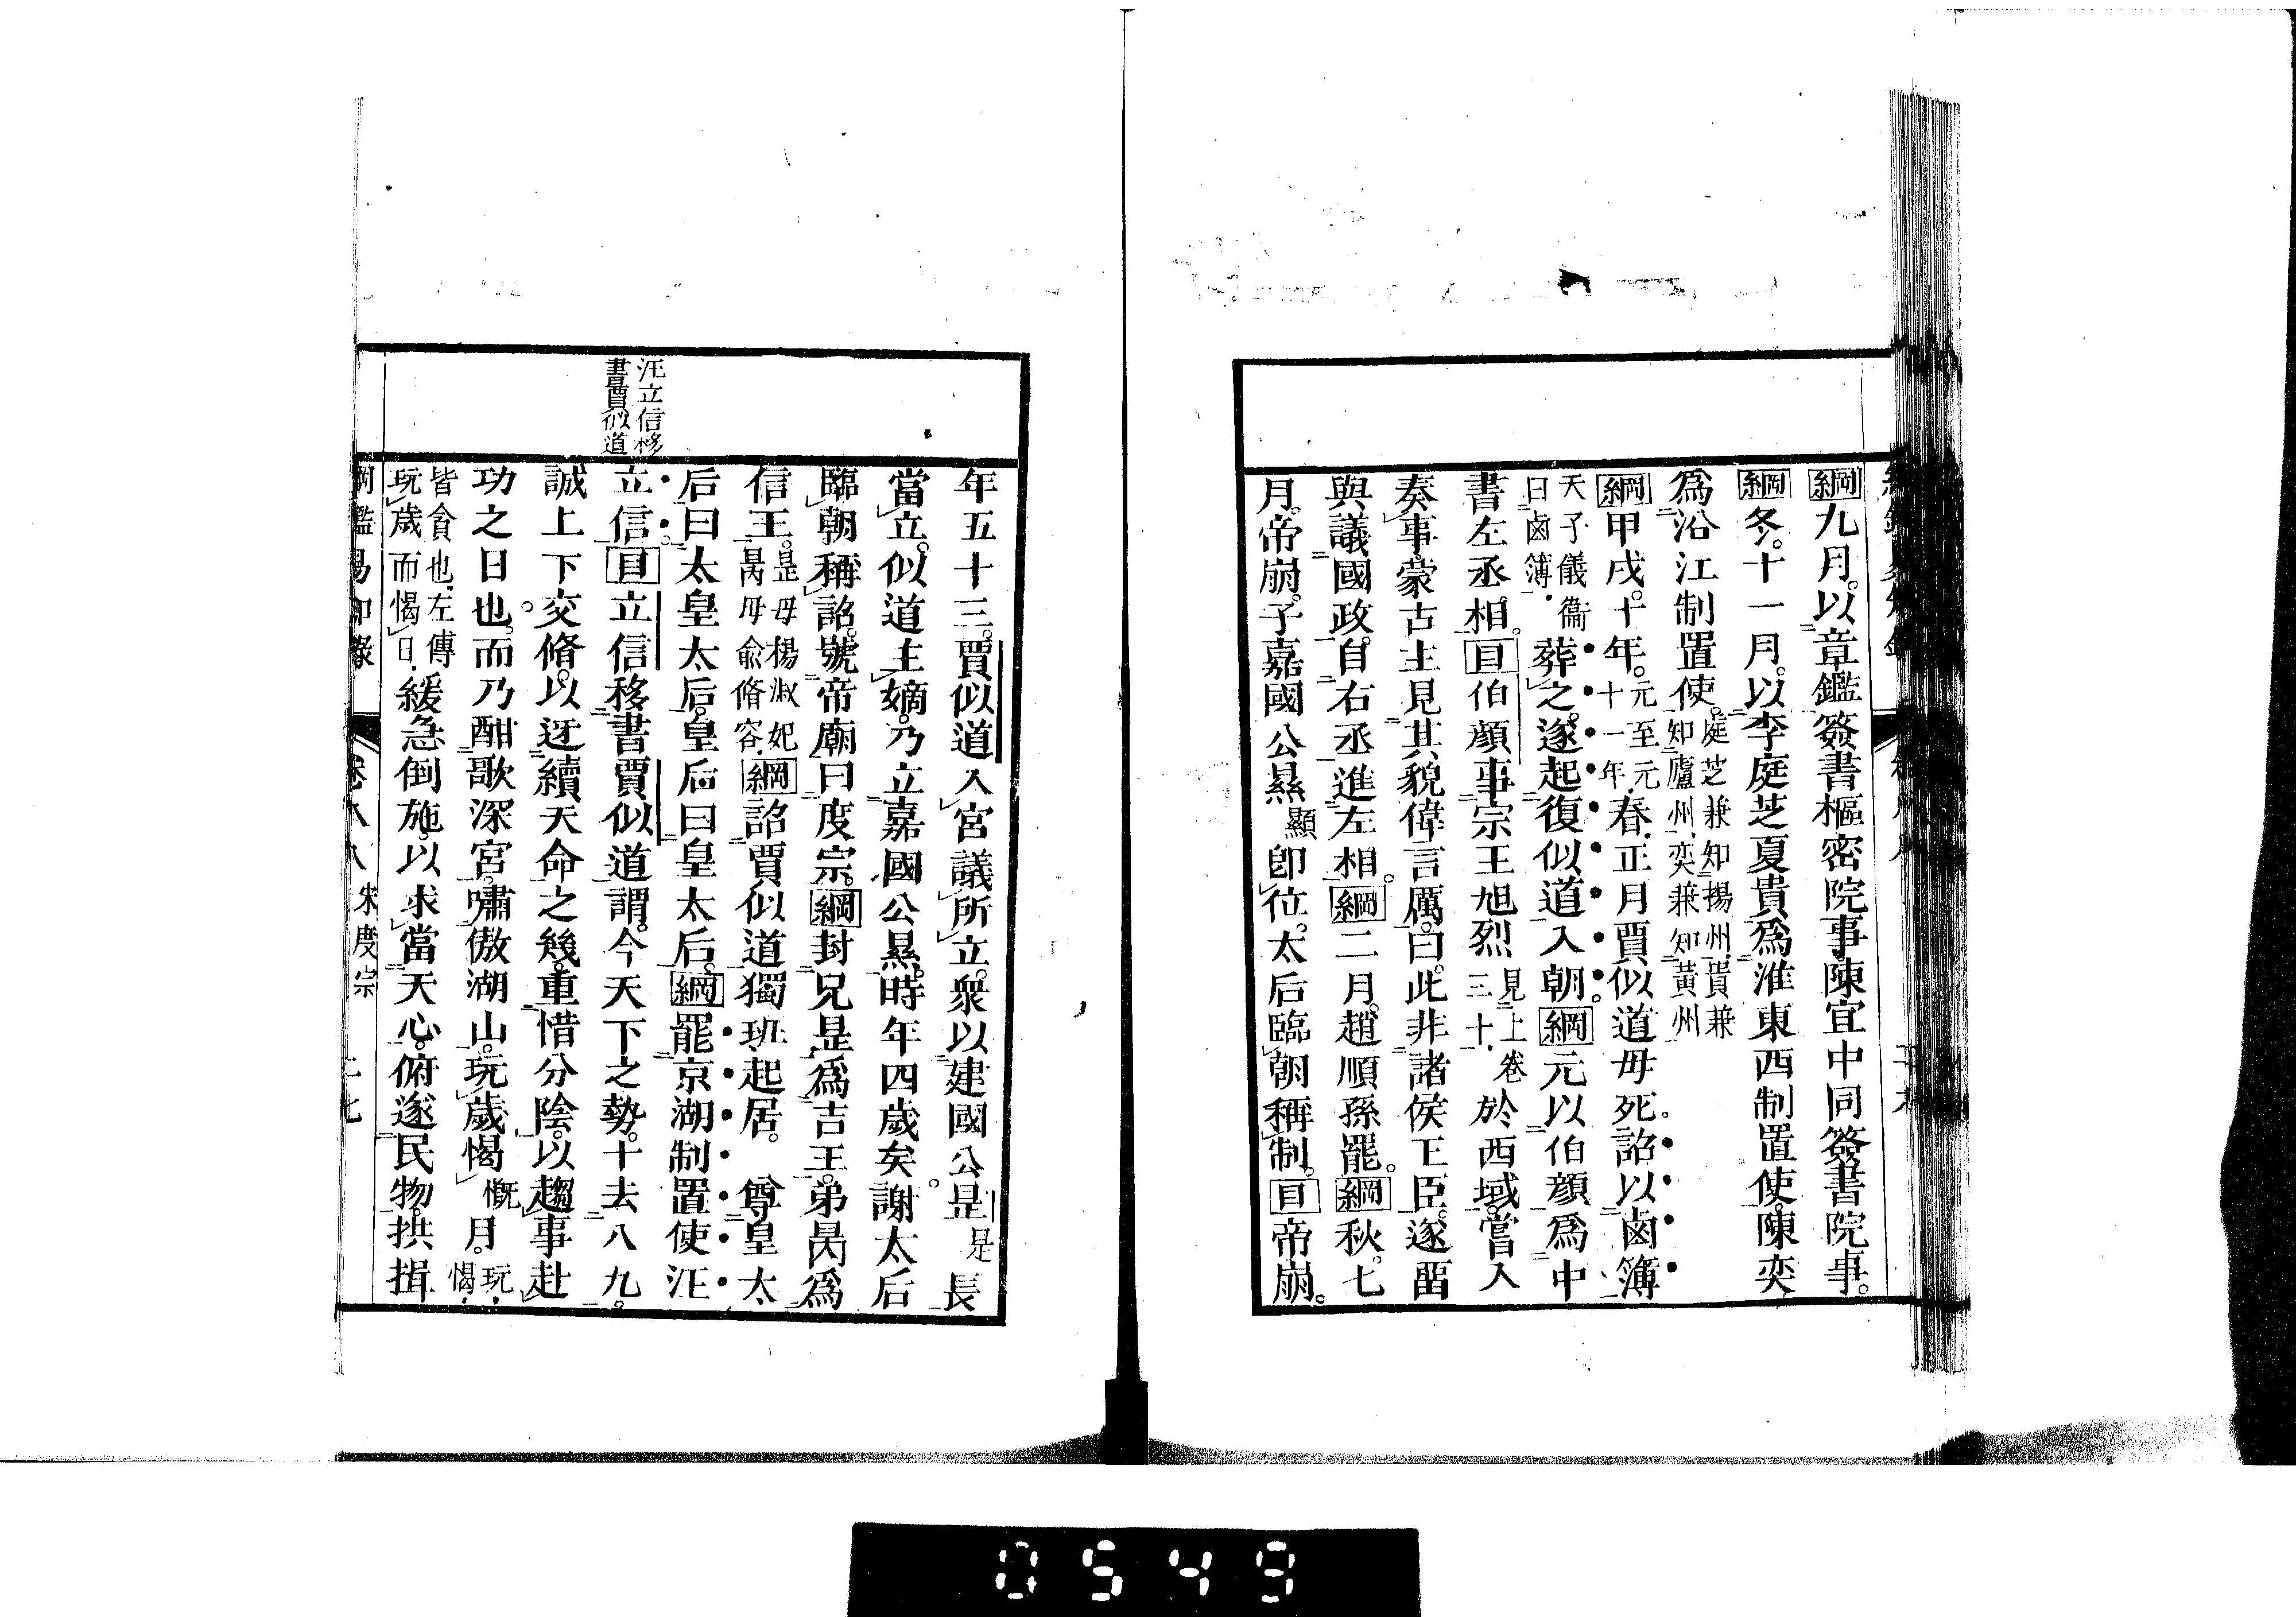 綱九月。以章鑑簽書樞密院事陳宜中同簽書院事。
綱冬。十一月。以李庭芝夏貴爲淮東西制置使。陳奕
爲沿江制置使。庭芝兼知揚州。貴兼知廬州。奕兼知黃州
綱甲戌。十年。元至元十一年。春。正月賈似道母死。詔以鹵簿
天子儀衞曰鹵簿。葬之。遂起復似道入朝。綱元以伯顏爲中
書左丞相。目伯顏事宗王旭烈見上卷三十。於西域。嘗入
奏事。蒙古主見其貌偉言厲。曰。此非諸侯王臣。遂畱
與議國政。自右丞進左相。綱二月。趙順孫罷。綱秋。七
月。帝崩。子嘉國公㬎顯卽位。太后臨朝稱制。目帝崩。
汪立信移
書賈似道
年五十三。賈似道入宮議所立。衆以建國公昰是長
當立。似道主嫡。乃立嘉國公㬎。時年四歲矣。謝太后
臨朝稱詔。號帝廟曰度宗。綱封兄昰爲吉王。弟昺爲
信王。昰母楊淑妃昺母俞脩容。綱詔賈似道獨班起居。尊皇太
后曰太皇太后。皇后曰皇太后。綱罷京湖制置使汪
立信。目立信移書賈似道謂。今天下之勢。十去八九。
誠上下交脩。以迓續天命之幾。重惜分陰。以趨事赴
功之日也。而乃酣歌深宮。嘯傲湖山。玩歲愒慨月。玩。愒。
皆貪也。左傳玩歲而愒日。緩急倒施。以求當天心。俯遂民物。拱揖
綱鑑易知錄 卷八八 宋度宗 二七
0549